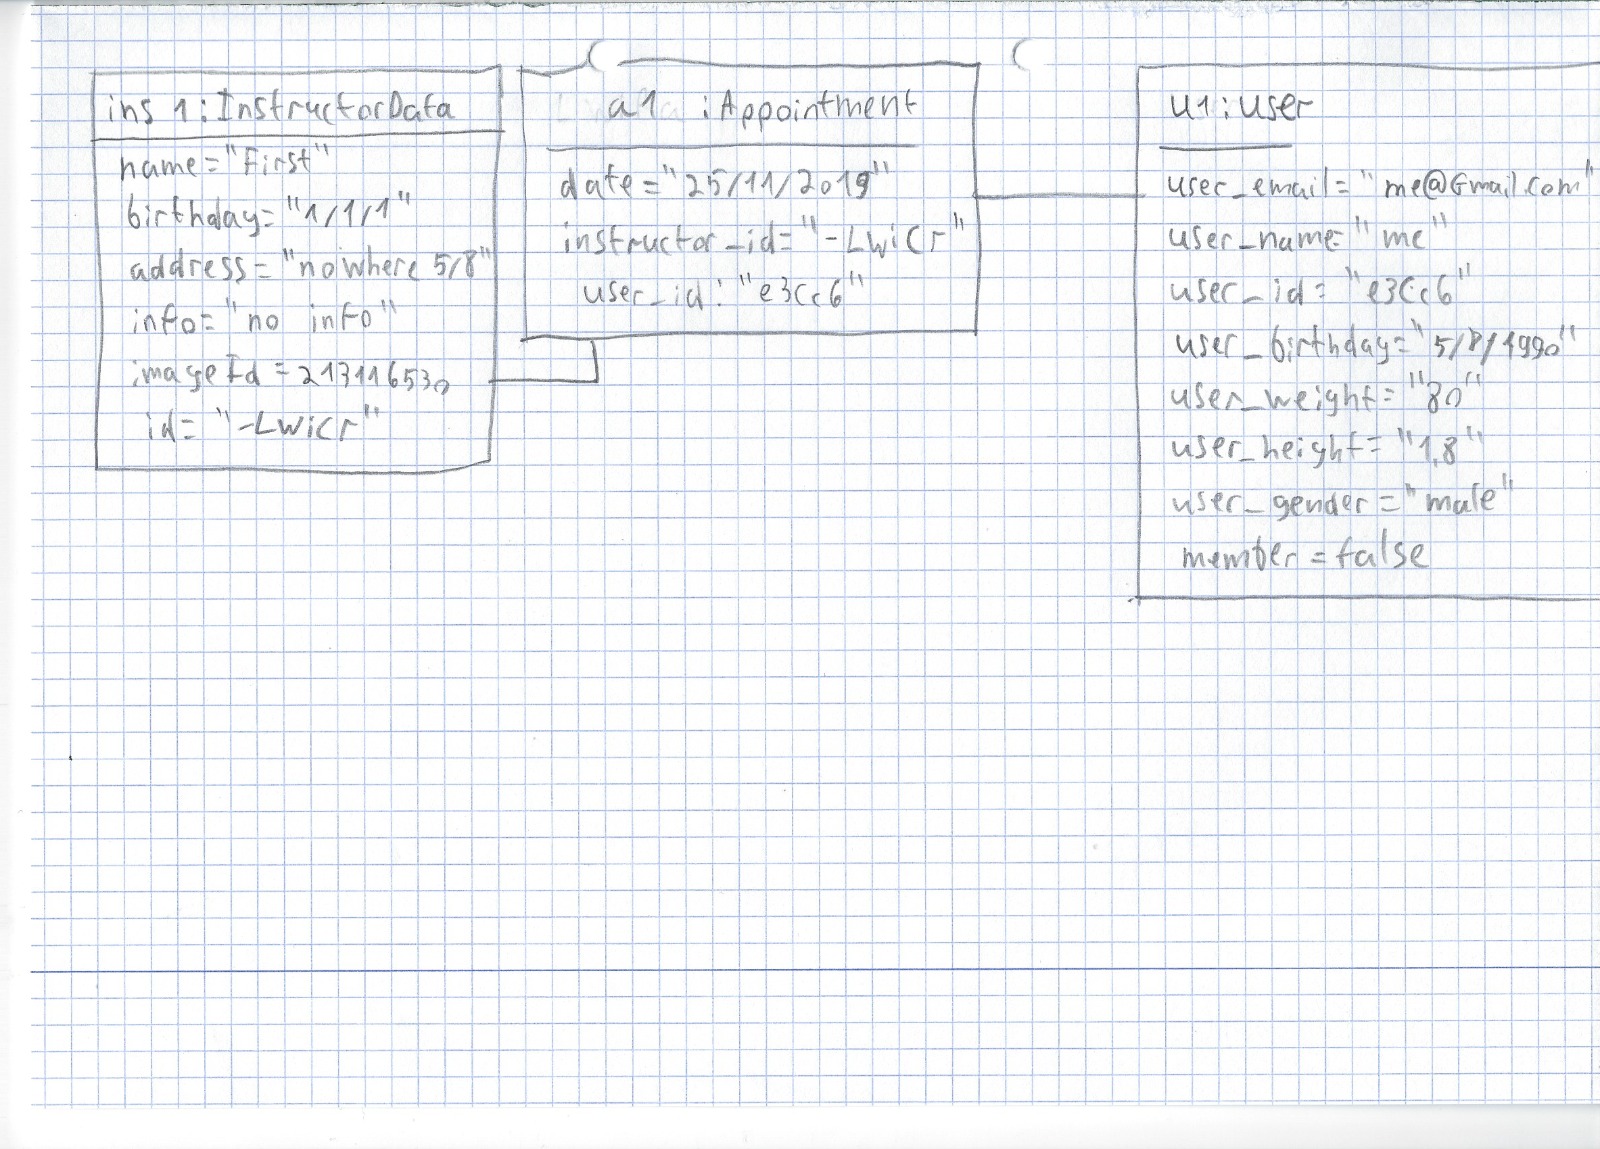 ins 1: InstructorData
name="First"
birthday="1/1/1"
address="nowhere 5/8"
info="no info"
imageId=213116530
id="-LwiCr"
a1 :Appointment
date="25/11/2019"
instructor_id="-LwiCr"
user_id:"e3Cc6"
u1:user
user_email="me@Gmail.com"
user_name="me"
user_id="e3Cc6"
user_birthday="5/8/1990"
user_weight="80"
user_height="1,8"
user_gender="male"
member=false